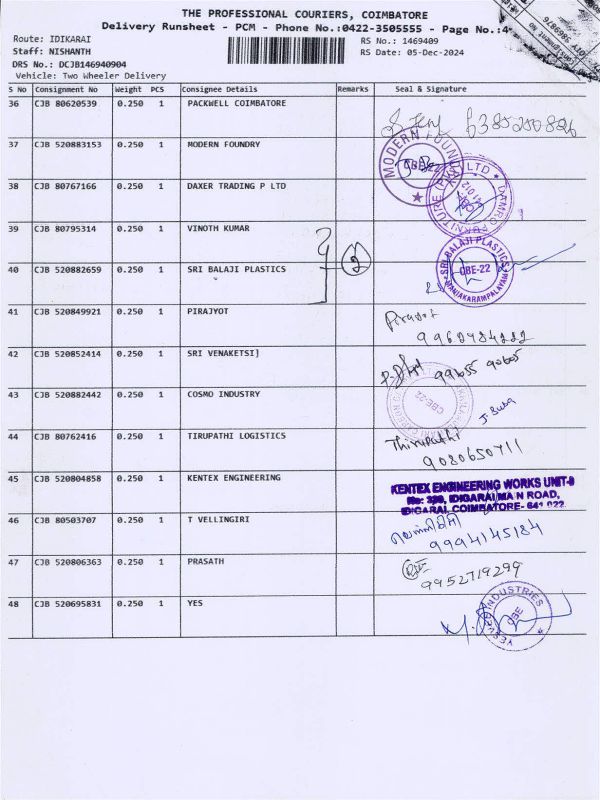 THE PROFESSIONAL COURIERS, COIMBATORE
Delivery Runsheet - PCM - Phone No.:0422-3505555 - Page No.:4
Route: IDIKARAI
RS No.: 1469409
Staff: NISHANTH
RS Date: 05-Dec-2024
DRS No.: DCJB146940904
Vehicle: Two Wheeler Delivery
S No Consignment No Weight PCS Consignee Details Remarks Seal & Signature
36 CJB 80620539 0.250 1 PACKWELL COIMBATORE
37 CJB 520883153 0.250 1 MODERN FOUNDRY
MODERN FOUN
CBE-22
38 CJB 80767166 0.250 1 DAXER TRADING P LTD
39 CJB 80795314 0.250 1 VINOTH KUMAR
2
40 CJB 520882659 0.250 1 SRI BALAJI PLASTICS
SRI BALAJI PLASTICS
CBE-22
MANJAKARAMPALAYAM
41 CJB 520849921 0.250 1 PIRAJYOT
42 CJB 520852414 0.250 1 SRI VENAKETSI]
99655 90605
43 CJB 520882442 0.250 1 COSMO INDUSTRY
CBE-22
44 CJB 80762416 0.250 1 TIRUPATHI LOGISTICS
Thirupathi
9080650711
45 CJB 520804858 0.250 1 KENTEX ENGINEERING
KENTEX ENGINEERING WORKS UNIT-II
No: 398, IDIGARAI MAIN ROAD,
IDIGARAI, COIMBATORE- 641 022.
46 CJB 80503707 0.250 1 T VELLINGIRI
9994145184
47 CJB 520806363 0.250 1 PRASATH
9952719299
48 CJB 520695831 0.250 1 YES
INDUSTRIES
CBE